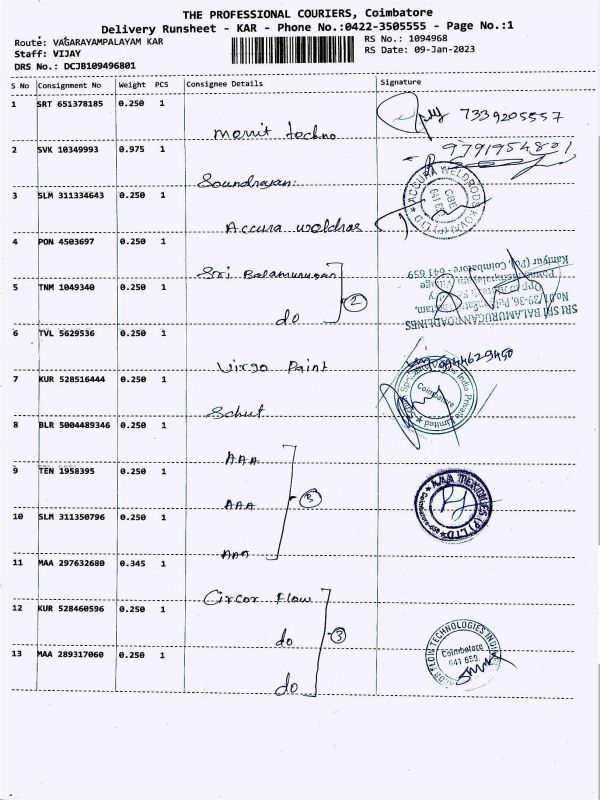 THE PROFESSIONAL COURIERS, Coimbatore
Delivery Runsheet - KAR - Phone No.:0422-3505555 - Page No.:1
Route: VAGARAYAMPALAYAM KAR
RS No.: 1094968
Staff: VIJAY
RS Date: 09-Jan-2023
DRS No.: DCJB109496801
S No Consignment No Weight PCS Consignee Details Signature
1 SRT 651378185 0.250 1
Merrit techno 7339205557
2 SVK 10349993 0.975 1 9791954801
Soundrajan.
3 SLM 311334643 0.250 1
Accura weldras
ACCURA WELDRODS KOVAI (P) LTD
CBE
641 659
4 PON 4503697 0.250 1
Sri Balamurugan
5 TNM 1049340 0.250 1
do 2
SRI SRI BALAMURUGAN ROADLINES
No.81/39-36,
Kaniyur (Po), Coimbatore - 641 659
6 TVL 5629536 0.250 1
Virgo Paint 9944629450
7 KUR 528516444 0.250 1
Schut
India Private Limited
Coimbatore
8 BLR 5004489346 0.250 1
AAA
9 TEN 1958395 0.250 1
AAA 3
AAA TEXTILES (P) LTD
10 SLM 311350796 0.250 1
AAA
11 MAA 297632680 0.345 1
Circor Flow
12 KUR 528460596 0.250 1
do 3
FLOW TECHNOLOGIES INDIA
Coimbatore
641 659
13 MAA 289317060 0.250 1
do